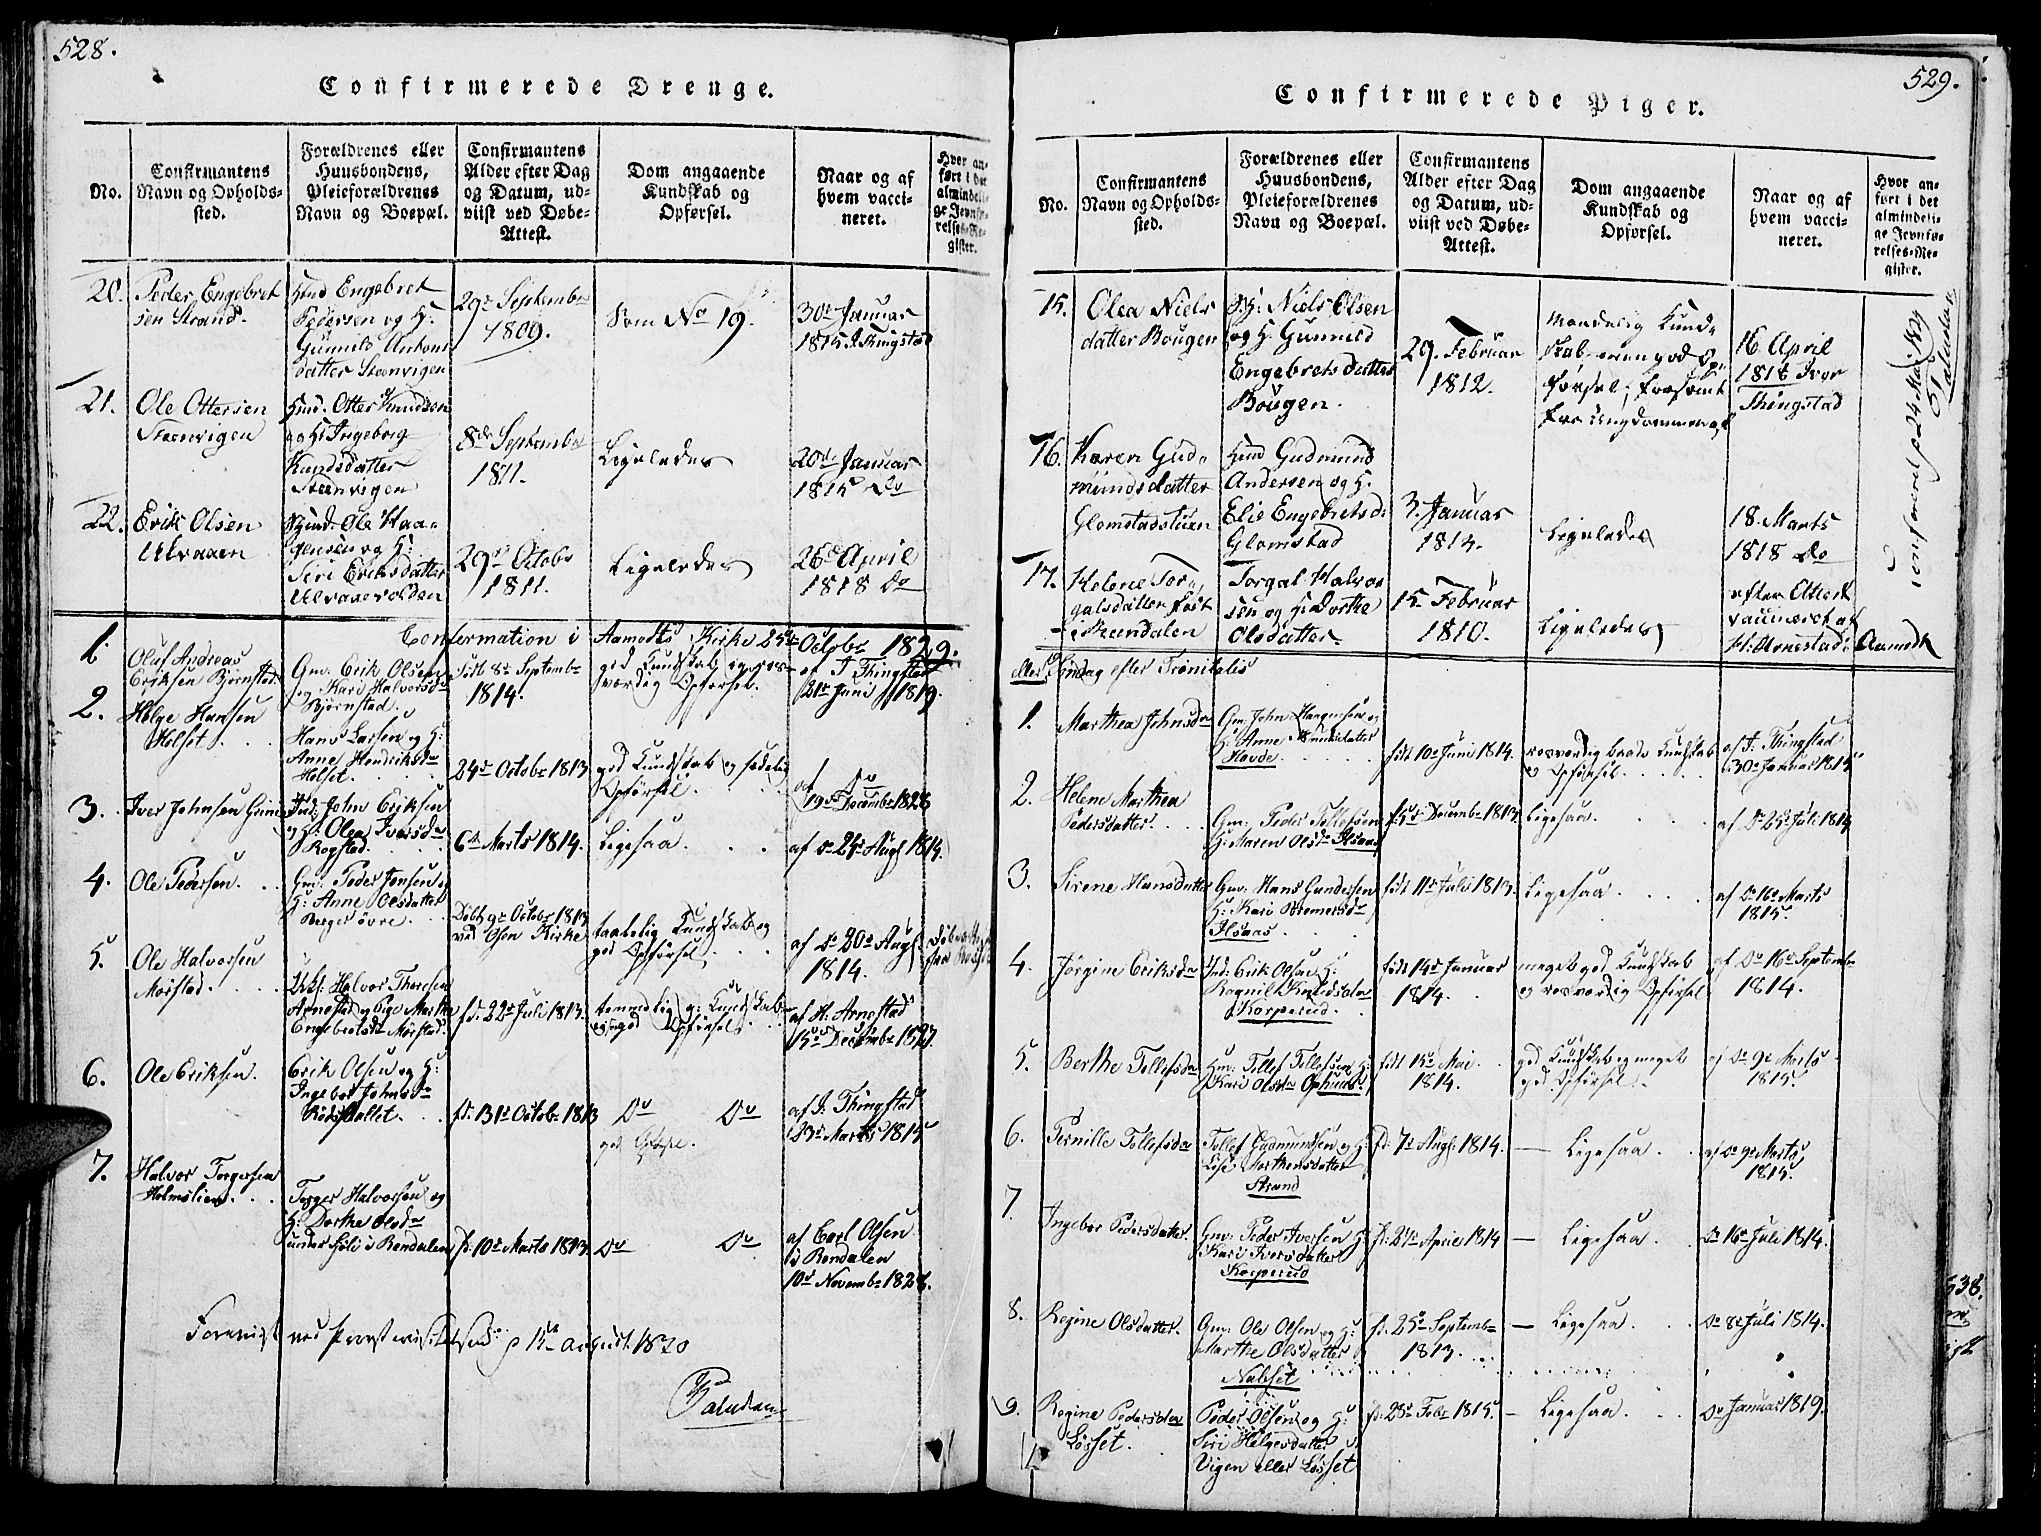 528.
Confirmerede Drenge.
No.
Confirmantens
Navn og Opholds-
sted.
Forældrenes eller
Huusbondens,
Pleieforældrenes
Navn og Boepæl.
Confirmantens
Alder efter Dag
og Datum, ud-
viist ved Døbe-
Attest.
Dom angaaende
Kundskab og
Opførsel.
Naar og af
hvem vacci-
neret.
Hvor an-
ført i det
almindeli-
ge Jevnfø-
relses-Re-
gister.
20.
Peder Engebret
sen Strand.
Huusd Engebret
Pedersen og H:
Gunnild Antons
datter Steenvigen
29de Septembr
1809.
Som No 19.
30te Januar
1815 I. Thingstad
21.
Ole Ottersen
Steenvigen
Huusd. Otter Knudsen
og H: Ingeborg
Knudsdatter
Steenvigen
8de Septembr
1811.
Ligeledes
20de Januar
1815 Do
22.
Erik Olsen
Ulvaaen
Huusd. Ole Haa-
gensen og H:
Siri Eriksdatter
Ulvaavolden
29de Octobr
1811.
Ligeledes
26de April
1818 Do
Confermation i Aamodts Kirke 25de Octobr 1829.
1.
Oluf Andreas
Eriksen Bjørnstad
Gm. Erik Olsen
og Kari Halvorsdr
Bjørnstad.
født 8de Septembr
1814.
god Kundskab og ros-
værdig Opførsel.
af I Thingstad
21de Juni 1819.
2.
Helge Hansen
Helset.
Hans Larsen og H:
Anne Hendriksdr
Helset.
24de Octobr 1813
god Kundskab og sædelig
Opførsel.
af Do
19de Decembr 1828
3.
Iver Johnsen Grini
Ind: John Eriksen
og H: Olea Iversdr
Rogstad.
6de Marts 1814.
Ligesaa.
af Do 24de Augs 1814.
4.
Ole Pedersen.
Gm. Peder Jensen og
H: Anne Olsdatter
Berger øvre.
Døbt 9de Octobr 1813
ved Osen Kirke
taalelig Kundskab og
god Opførsel.
af Do 20de Augs
1814.
5.
Ole Halvorsen
Mørstad.
Halvor Thoresen
Arnestad og Pige Marthe
Engebretsdr Mørstad.
fd: 22de Juli 1813.
temmelig g: Kundskab
og god Opførsel
af H: Arnestad
15de Decembr 1827.
6.
Ole Eriksen.
Erik Olsen og H:
Ingebor Johnsdr
Rødshallet.
fd: 31te Octobr 1813
Do Do
god Opførsel.
af I: Thingstad
23de Marts 1815
7.
Halvor Torgersen
Holmslien.
Torger Halvorsen og
H: Dorthe Olsdr
under Søli i Rendalen
fd: 10de Marts 1813
Do Do
af Carl Olsen
i Rendalen
10de Novembr 1828.
Foreviist ved Provstevisitatsen d: 15de August 1830
Paludan
529.
Confirmerede Piger.
No.
Confirmantens
Navn og Opholds-
sted.
Forældrenes eller
Huusbondens,
Pleieforældrenes
Navn og Boepæl.
Confirmantens
Alder efter Dag
og Datum, ud-
viist ved Døbe-
Attest.
Dom angaaende
Kundskab og
Opførsel.
Naar og af
hvem vacci-
neret.
Hvor an-
ført i det
almindeli-
ge Jevnfø-
relses-Re-
gister.
15.
Olea Niels
datter Bougen
Niels Olsen
og H. Gunnild
Engebretsdatter
Bougen.
29. Februar
1812.
Maadelig Kund-
skab, men god Op-
førsel; forsømt
fra Ungdommen af
16 April
1818 Iver
Thingstad
16.
Karen Gud-
mundsdatter
Glomstadstuen
Huusd Gudmund
Andersen og H.
Elie Engebretsd:
Glomstad
3. Januar
1814.
Ligeledes
18. Marts
1818 Do
17.
Helene Tor-
galsdatter
i Rendalen
Torgal Halvor
sen og H: Dorthe
Olsdatter
15. Februar
1810.
Ligeledes
efter Attest
vaccineret af
H: Arnestad i Aamodt
eller 19 Søndag efter Trinitatis
1.
Marthea Johnsdr
Gm. John Haagensen og
H: Anne Amundsdatter
Hovde.
født 10de Juni 1814.
rosværdig baade Kundskab
og Opførsel.
af I. Thingstad
30te Januar 1815
2.
Helene Marthea
Pedersdatter.
Gm. Peder Tollefsen
H: Maren Olsdr Ilsaas
f: 5te Decembr 1813
Ligesaa.
af Do 25de Juli 1814
3.
Sirene Hansdatter
Gm. Hans Gundersen
H: Kari Bremersdr
Ilsaas
født 11te Julii 1813.
Ligesaa.
af Do 16de Marts
1815.
4.
Jørgine Eriksdr
Ind: Erik Olsen H:
Ragnil Knudsdatter
Korperud.
født 14de Januar
1814.
meget god Kundskab
og rosværdig Opførsel
af Do 16de Septembr
1814.
5.
Berthe Tollefsdr
Gm: Tollef Tollefsen H:
Kari Olsdr Ophuus
født 15de Mai
1814.
god Kundskab og meget
god Opførsel.
af Do 9de Marts
1815.
6.
Pernille Tollefsdr
Tollef Gudmundsen og H:
Lise Morthensdatter
Strand
fd: 7de Augs: 1814.
— Ligesaa.
af Do 9de Marts
1815.
7.
Ingebor Pedersdatter.
Gm: Peder Iversen H:
Kari Iversdatter
Korperud
fd: 27de April 1814
— Ligesaa.
Do 16de Juli 1814.
8.
Regine Olsdatter.
Gm: Ole Olsen og H:
Marthe Olsdatter
Nabset
fd: 25de Septembr
1813.
— Ligesaa.
Do 8de Juli 1814.
9.
Regine Pedersdr
Løsset.
Peder Olsen og H:
Siri Helgesdatter
Vigen eller Løsset
fd: 28de Febr 1815.
— Ligesaa.
Do Januar 1819.
confirmeret
Paludan
538.